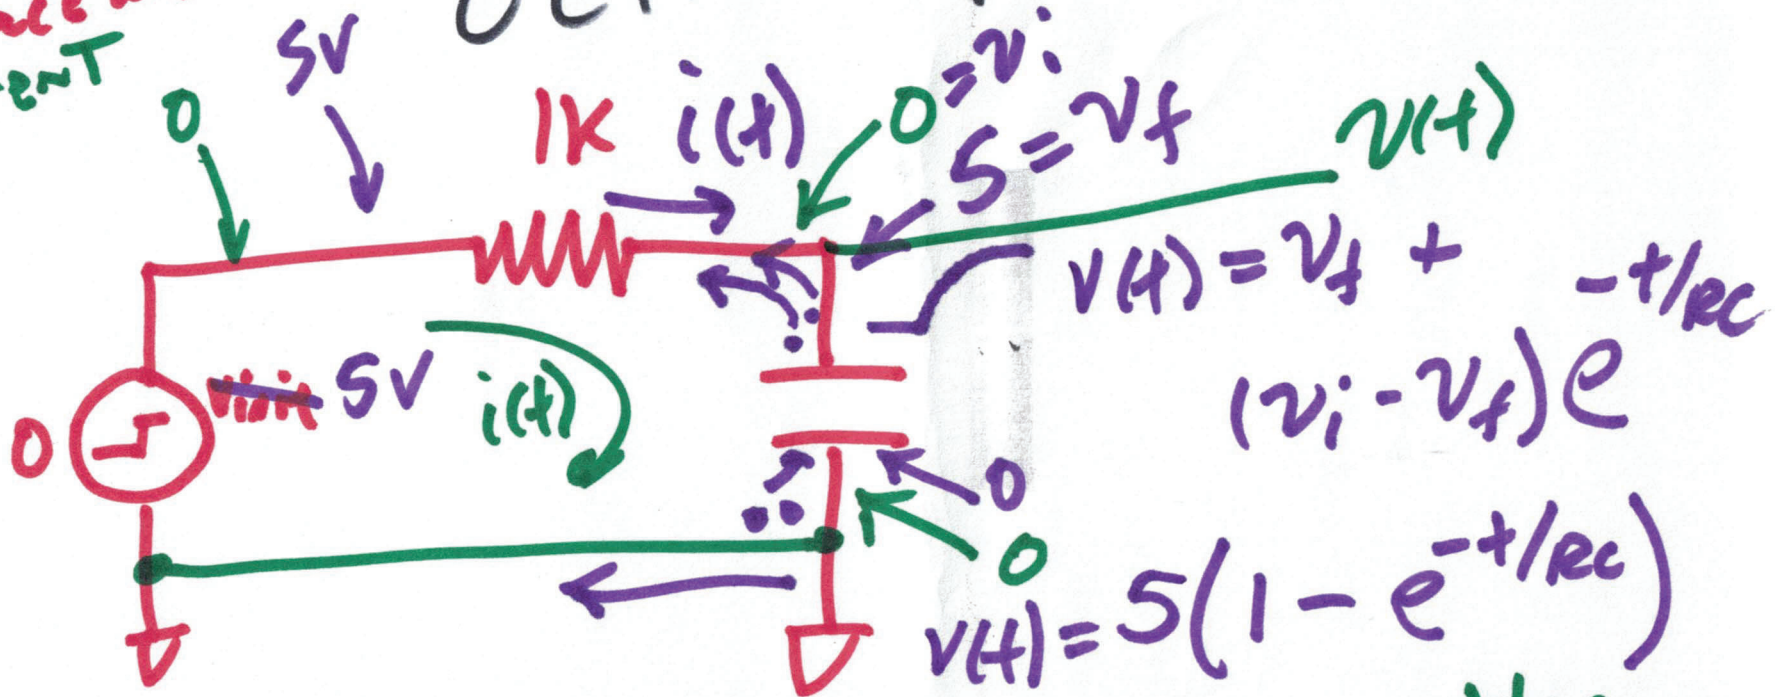 ENT
5V
0
1K
i(t)
0 = vi
5 = vf
v(t)
v(t) = vf +
(vi - vf) e^-t/RC
0
5V
i(t)
0
0
v(t) = 5(1 - e^-t/RC)